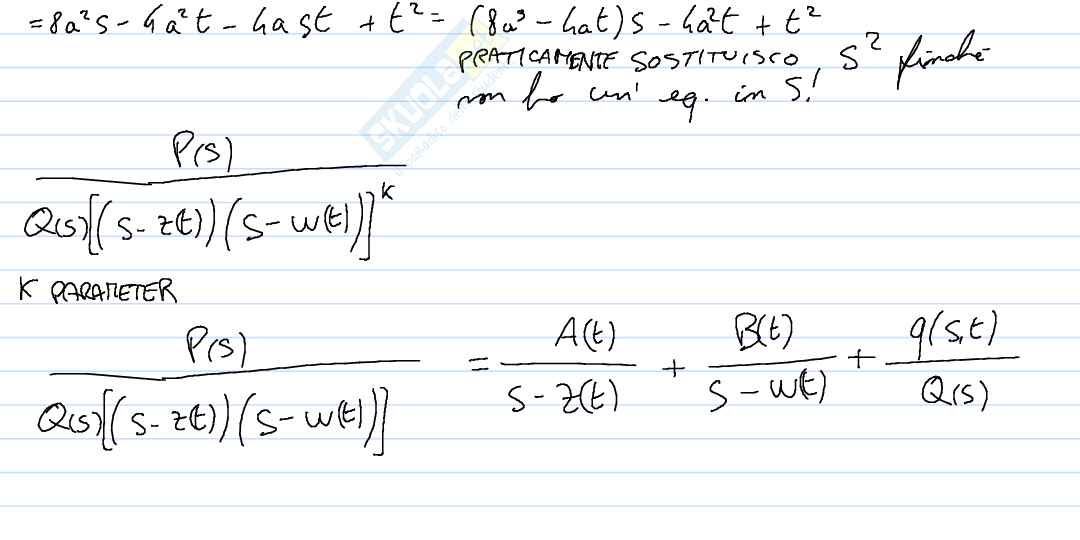 = 8a²s - 4a²t - 4ast + t² = (8a³ - 4at)s - 4a²t + t²
PRATICAMENTE SOSTITUISCO, S² finché
non ho un' eq. in S!
SKUOLA
P(s)
Q(s)[(s - z(t))(s - w(t))]^k
K PARAMETER
P(s) / Q(s)[(s - z(t))(s - w(t))] = A(t) / s - z(t) + B(t) / s - w(t) + q(s,t) / Q(s)